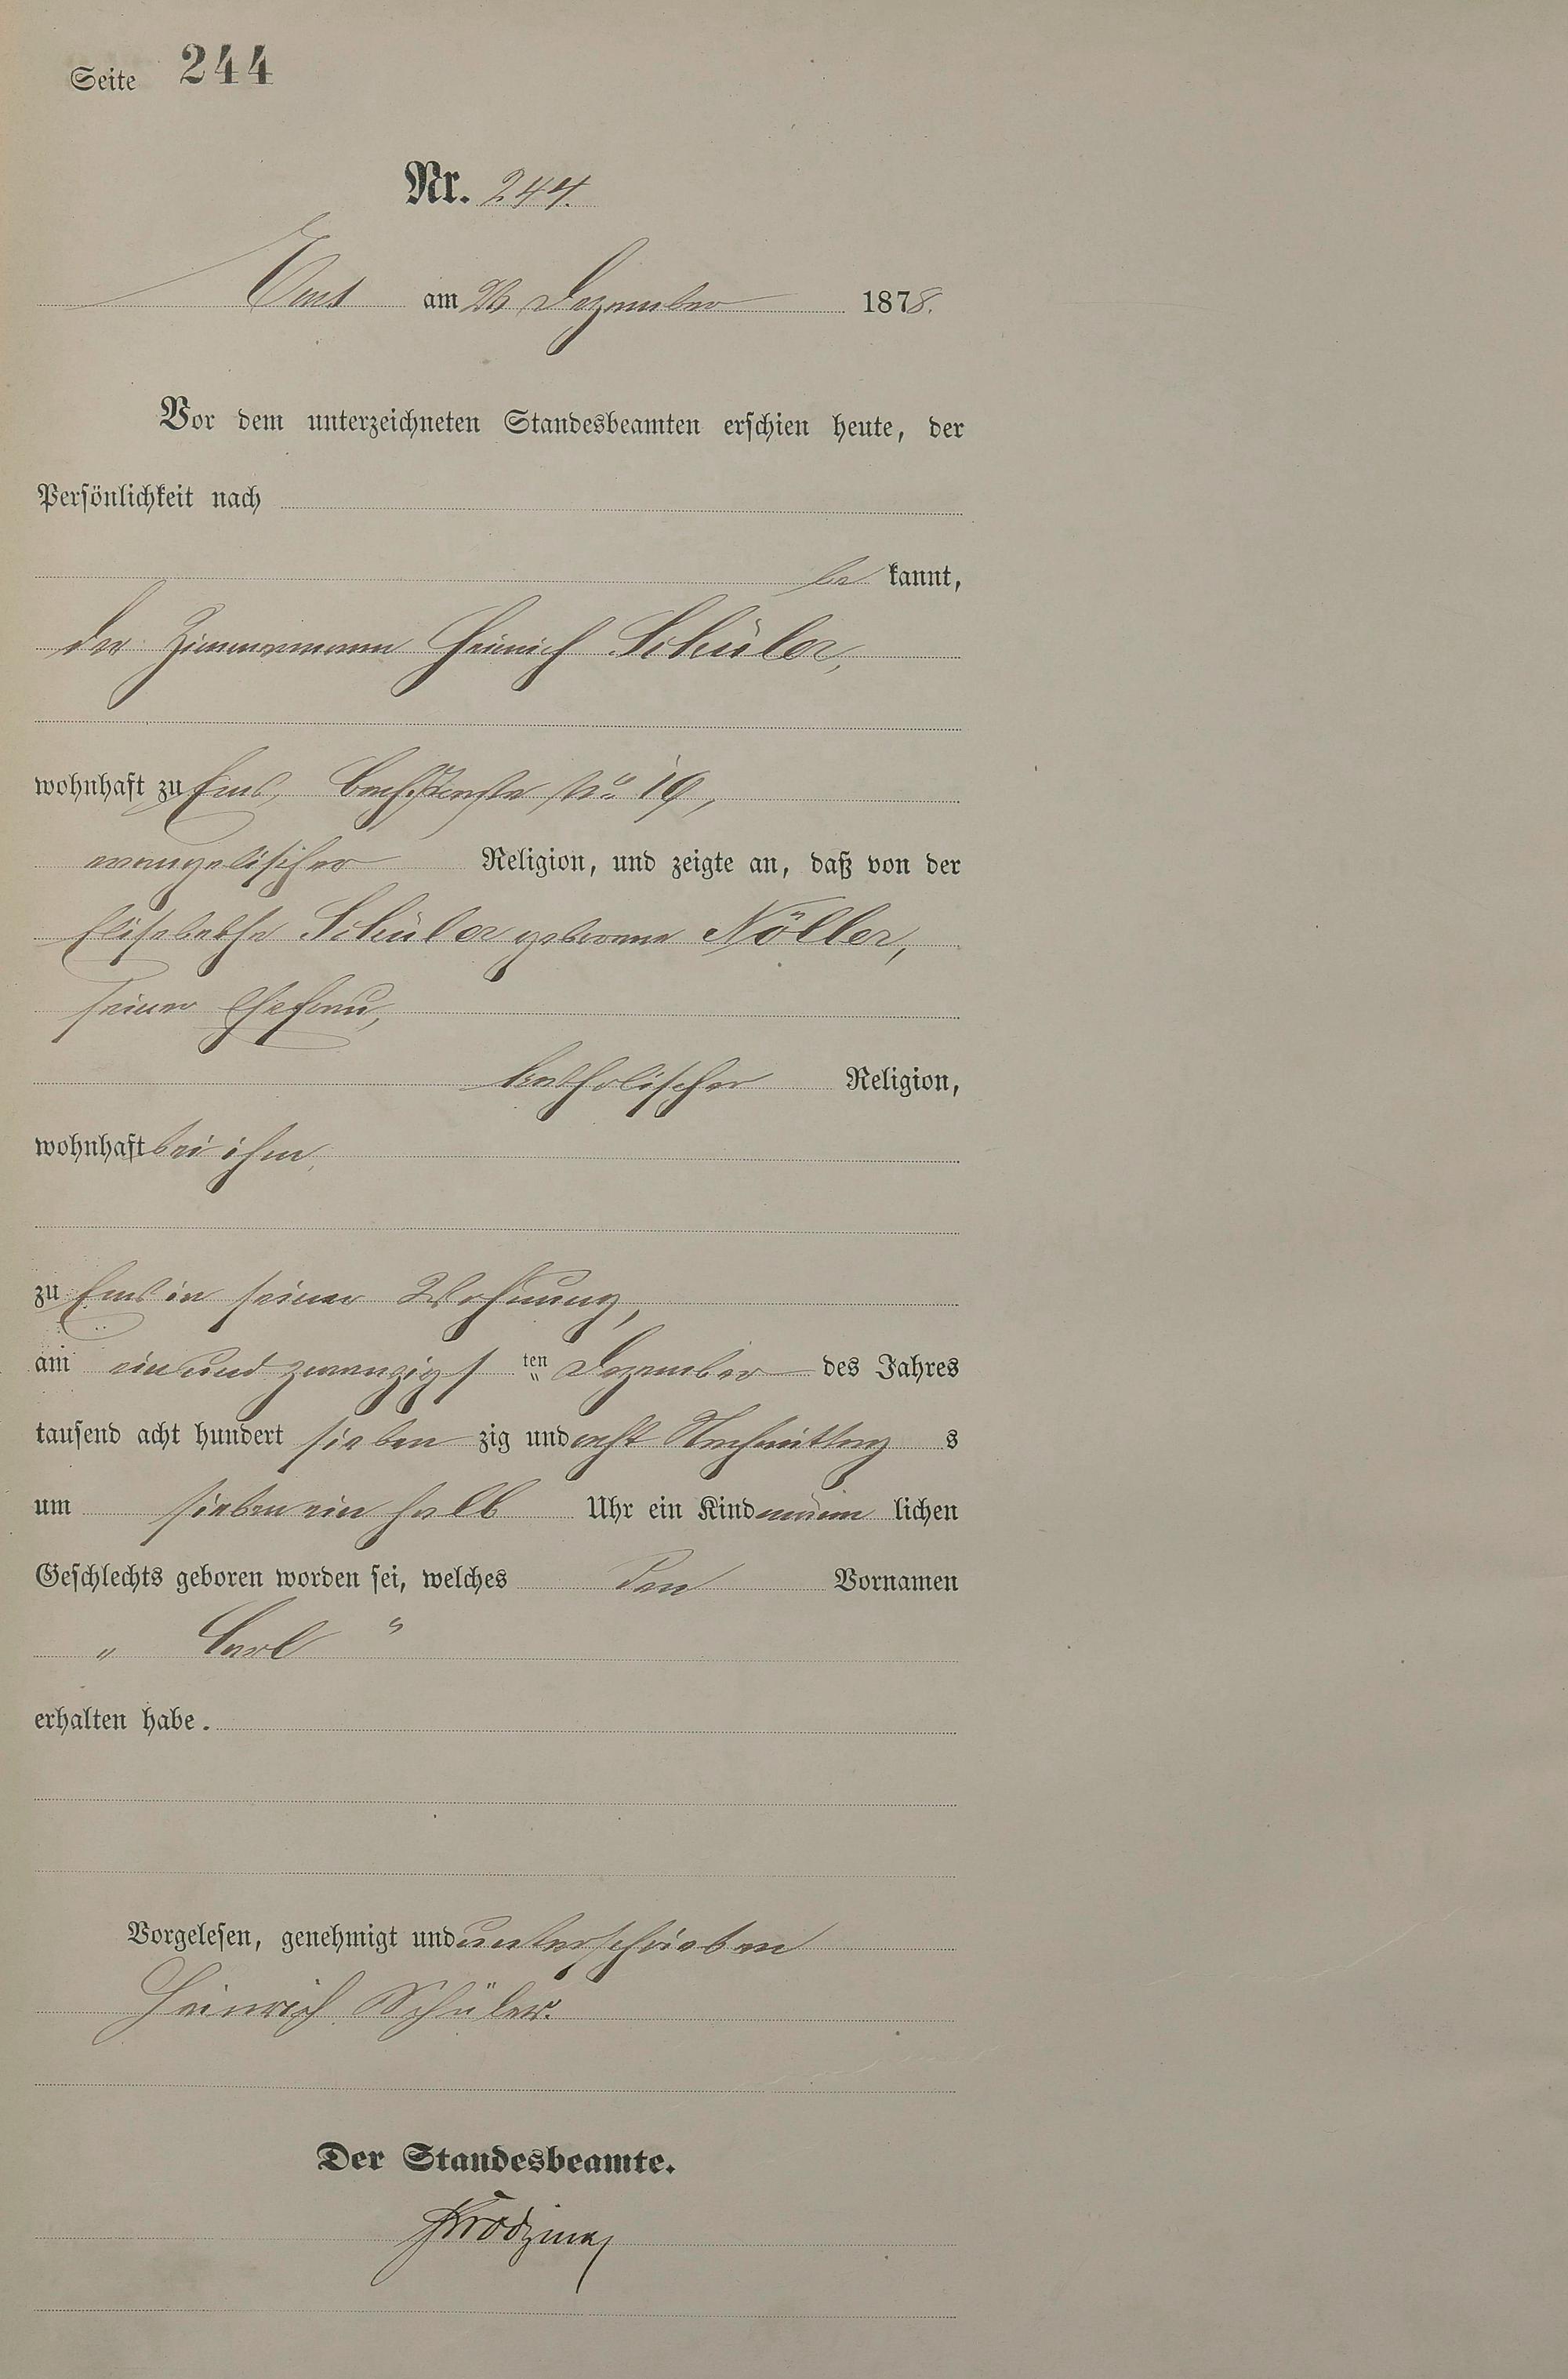 Seite 244
Nr. 244.
Ems am Dezember 1878.
Vor dem unterzeichneten Standesbeamten erschien heute, der
Persönlichkeit nach
be kannt,
der Zimmermann Heinrich Schüler,
wohnhaft zu Ems, Bachstraße No 19,
evangelischer Religion, und zeigte an, daß von der
Elisabethe Schüler geborene Nöller,
seiner Ehefrau,
katholischer Religion,
wohnhaft bei ihm,
zu Ems in seiner Wohnung,
am ein und zwanzigs ten Dezember des Jahres
tausend acht hundert sieben zig und acht Nachmittag s
um sieben ein halb Uhr ein Kind männ lichen
Geschlechts geboren worden sei, welches den Vornamen
„ Carl “
erhalten habe.
Vorgelesen, genehmigt und unterschrieben
Heinrich Schüler.
Der Standesbeamte.